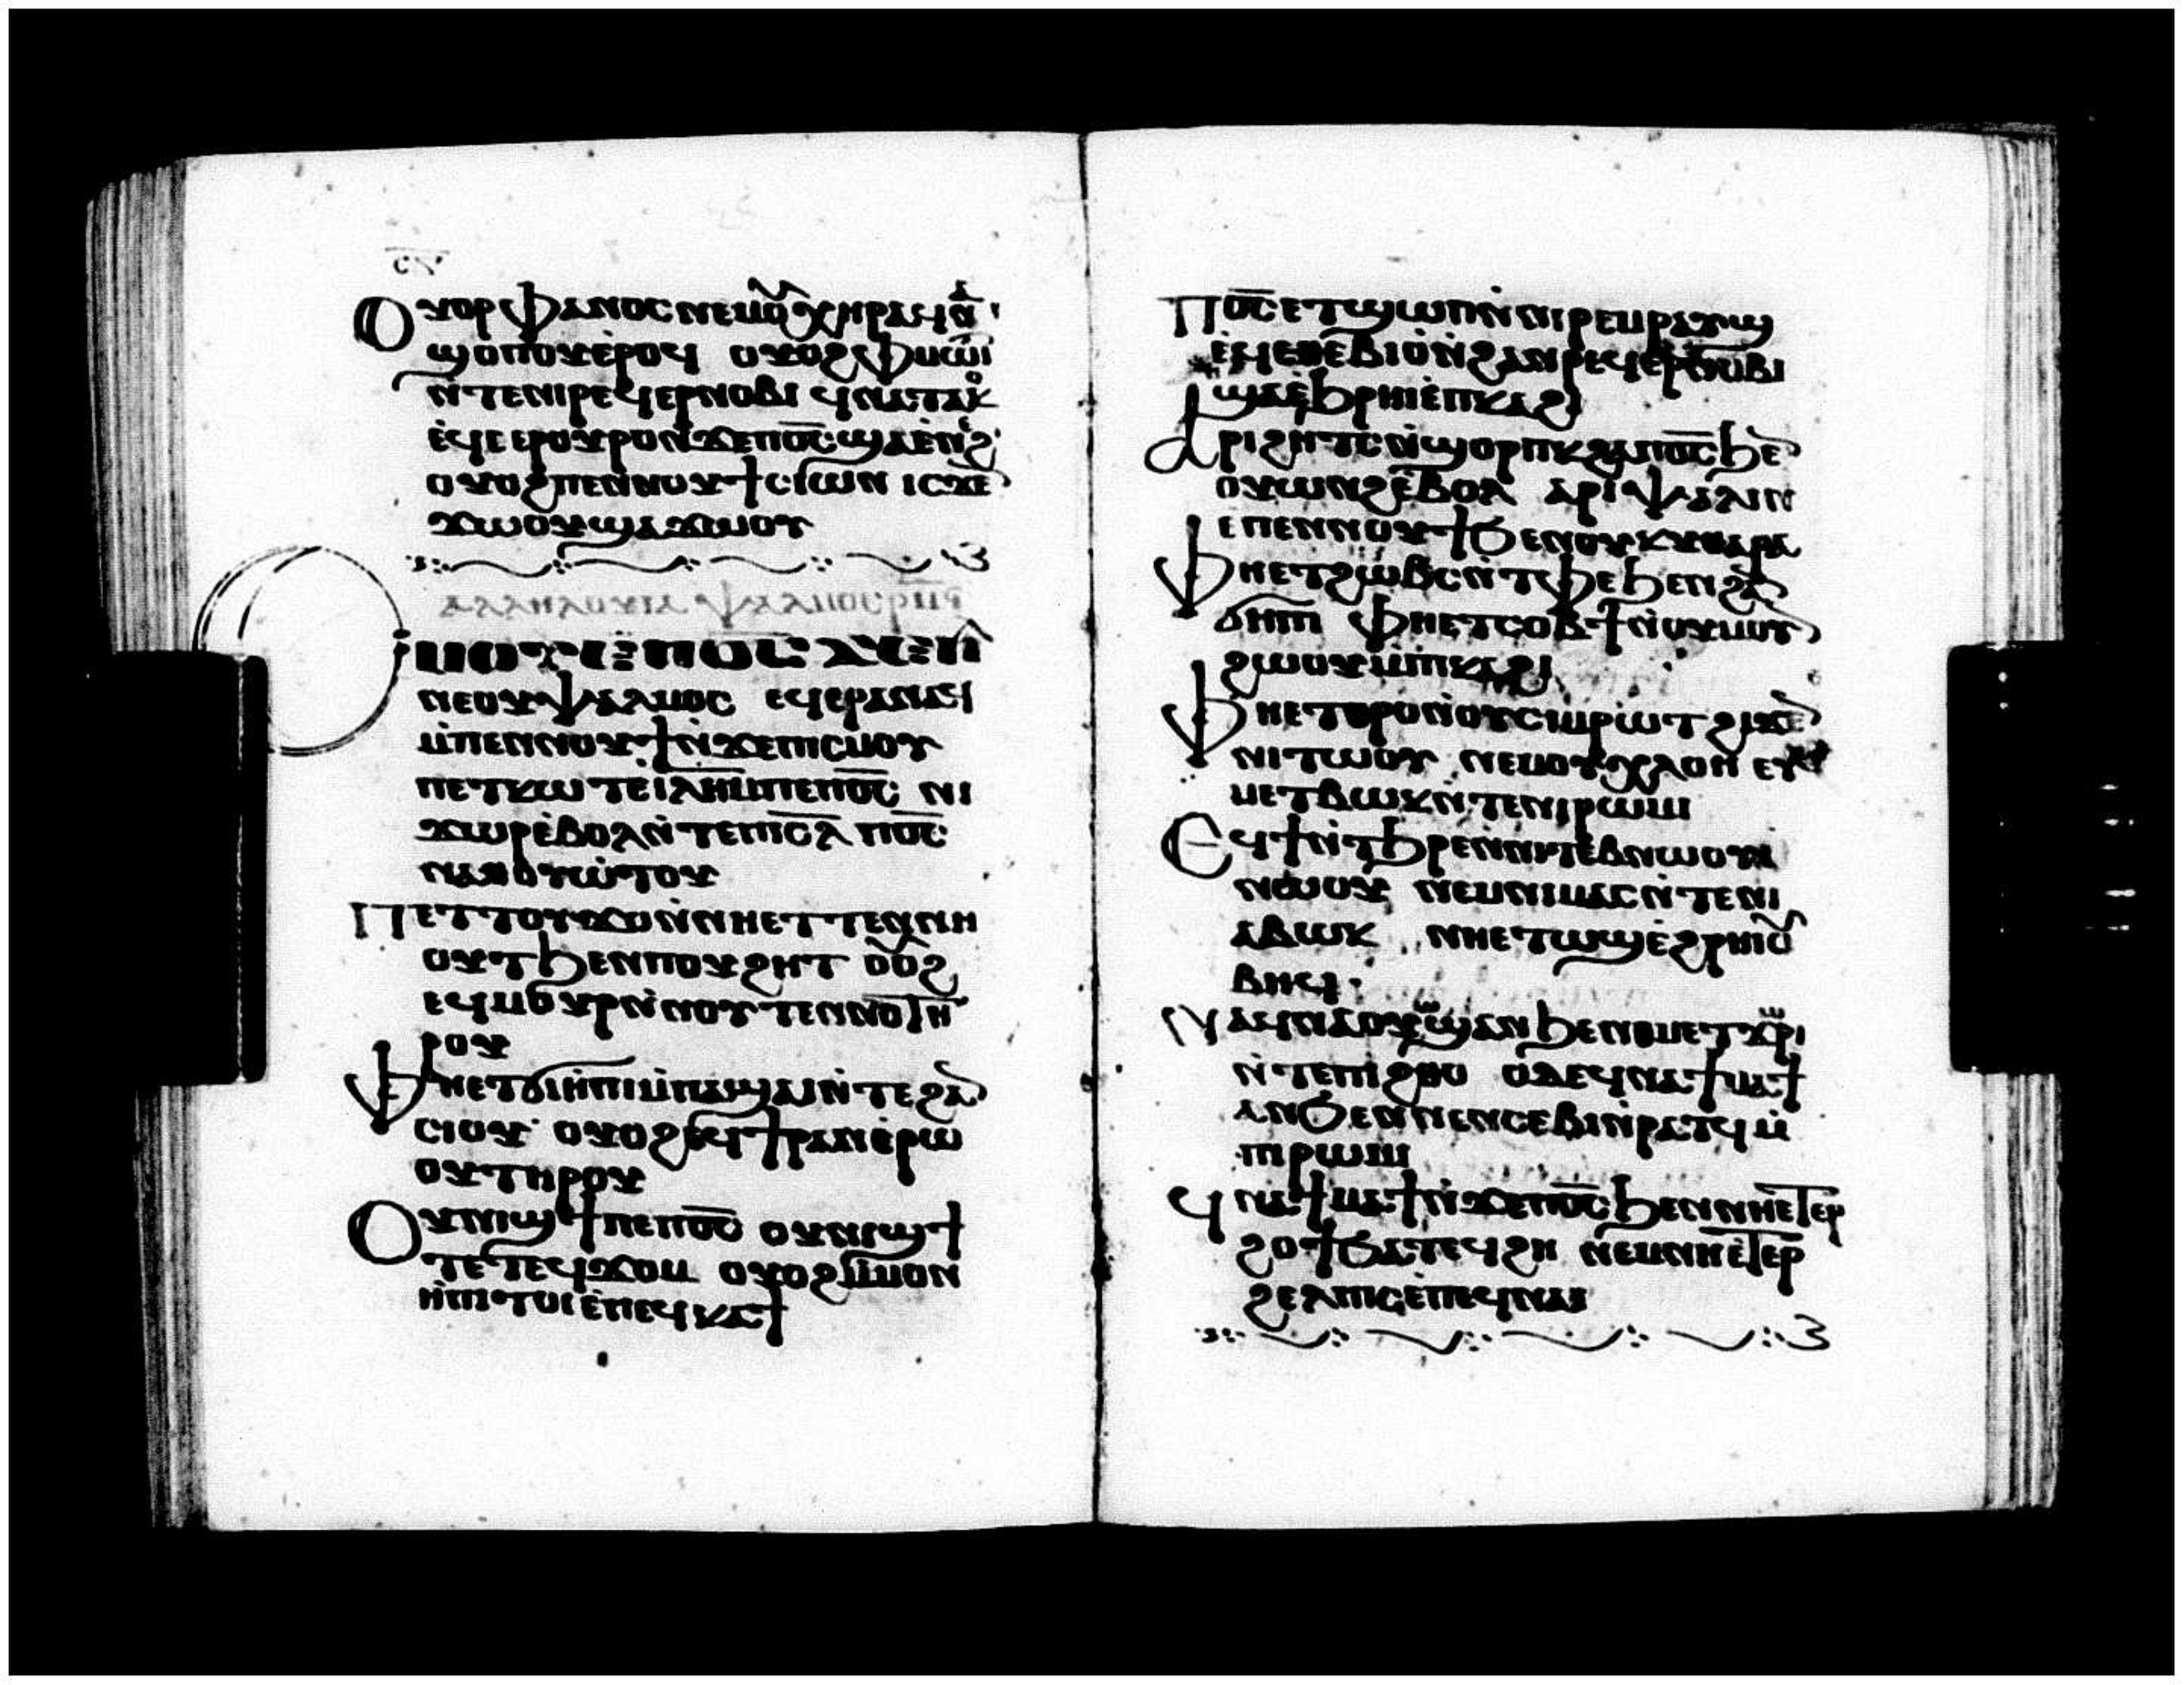 ⲥⲛ
Ⲟⲩⲟⲣⲫⲁⲛⲟⲥ ⲛⲉⲙⲟⲩⲭⲏⲣⲁ ϥⲛⲁ
ϣⲟⲡⲟⲩ ⲉⲣⲟϥ ⲟⲩⲟϩ ⲫⲙⲱⲓⲧ
ⲛⲧⲉⲛⲓⲣⲉϥⲉⲣⲛⲟⲃⲓ ϥⲛⲁⲧⲁⲕⲟϥ
ⲉϥⲉⲉⲣⲟⲩⲣⲟ ⲛϫⲉⲡⲟ̅ⲥ̅ ϣⲁⲉⲛⲉϩ
ⲟⲩⲟϩ ⲡⲉⲛⲛⲟⲩϯ ⲥⲓⲱⲛ ⲓⲥϫⲉⲛ
ϫⲱⲟⲩ ϣⲁ ϫⲱⲟⲩ
ⲁⲗⲗⲏⲗⲟⲩⲓⲁ ⲯⲁⲗⲙⲟⲥ ⲣⲙⲋ
Ⲥⲙⲟⲩ ⲉⲡⲟ̅ⲥ̅ ϫⲉⲛⲁ
ⲛⲉⲟⲩⲯⲁⲗⲙⲟⲥ ⲉϥⲉⲣⲁⲛⲁϥ
ⲙⲡⲉⲛⲛⲟⲩϯ ⲛϫⲉⲡⲓⲥⲙⲟⲩ
ⲡⲉⲧⲕⲱⲧ ⲉⲓ̅ⲗ̅ⲏ̅ⲙ̅ ⲡⲉ ⲡⲟ̅ⲥ̅ ⲛⲓ
ϫⲱⲣ ⲉⲃⲟⲗ ⲛⲧⲉⲡⲓ̅ⲥ̅ⲗ̅ ⲡⲟ̅ⲥ̅
ⲛⲁⲑⲟⲩⲱⲧⲟⲩ
Ⲡⲉⲧⲧⲟⲩϫⲟ ⲛⲛⲏⲉⲧⲧⲉⲛⲛⲏ
ⲟⲩⲧ ϧⲉⲛⲡⲟⲩϩⲏⲧ ⲟⲩⲟϩ
ⲉϥⲙⲟⲩⲣ ⲛⲛⲟⲩⲧⲉⲛⲛⲟ ⲧⲏ
ⲣⲟⲩ
Ⲫⲏⲉⲧϭⲓⲏⲡⲓ ⲙⲡⲁϣⲁⲓ ⲛⲧⲉϩⲁⲛ
ⲥⲓⲟⲩ ⲟⲩⲟϩ ⲉϥϯⲣⲁⲛ ⲉⲣⲱ
ⲟⲩ ⲧⲏⲣⲟⲩ
Ⲟⲩⲛⲓϣϯ ⲡⲉ ⲡⲟ̅ⲥ̅ ⲟⲩⲛⲓϣϯ
ⲧⲉ ⲧⲉϥϫⲟⲙ ⲟⲩⲟϩ ⲙⲙⲟⲛ
ⲏⲡⲓ ⲧⲟⲓ ⲉⲡⲉϥⲕⲁϯ
Ⲡⲟ̅ⲥ̅ ⲉⲧϣⲱⲡ ⲛⲛⲓⲣⲉⲙⲣⲁⲩϣ
ⲉϥⲑⲉⲃⲓⲟ ⲛϩⲁⲛⲣⲉϥⲉⲣⲛⲟⲃⲓ
ϣⲁ ⲉϧⲣⲏⲓ ⲉⲡⲕⲁϩⲓ
Ⲁⲣⲓϩⲏⲧⲥ ⲛϣⲟⲣⲡ ⲕϩⲁ ⲡⲟ̅ⲥ̅ ϧⲉⲛ
ⲟⲩⲱⲛϩ ⲉⲃⲟⲗ ⲁⲣⲓⲯⲁⲗⲓⲛ
ⲉⲡⲉⲛⲛⲟⲩϯ ϧⲉⲛⲟⲩⲕⲩⲑⲁⲣⲁ
Ⲫⲏⲉⲧϩⲱⲃⲥ ⲛⲧⲫⲉ ϧⲉⲛϩⲁⲛ
ϭⲏⲡⲓ ⲫⲏⲉⲧⲥⲟⲃϯ ⲛⲟⲩⲙⲟⲩⲛ
ϩⲱⲟⲩ ⲙⲡⲕⲁϩⲓ
Ⲫⲏⲉⲧⲑⲣⲟ ⲛⲟⲩⲥⲓⲙ ⲣⲱⲧ ϩⲓϫⲉⲛ
ⲛⲓⲧⲱⲟⲩ ⲛⲉⲙⲟⲩⲭⲗⲟⲏ ⲉⲩ
ⲙⲉⲧⲃⲱⲕ ⲛⲧⲉⲛⲓⲣⲱⲙⲓ
Ⲉϥϯ ⲛⲧϧⲣⲉ ⲛⲛⲓⲧⲉⲃⲛⲱⲟⲩⲓ
ⲛⲱⲟⲩ ⲛⲉⲙⲛⲓⲙⲁⲥ ⲛⲧⲉⲛⲓ
ⲁⲃⲱⲕ ⲛⲏⲉⲧⲱϣ ⲉϩⲣⲏⲓ ⲟⲩ
ⲃⲏϥ
Ⲛⲁϥⲛⲁⲟⲩⲱϣ ⲁⲛ ϧⲉⲛⲑⲙⲉⲧϫⲱⲣⲓ
ⲛⲧⲉⲡⲓϩⲑⲟ ⲟⲩⲇⲉ ϥⲛⲁϯⲙⲁϯ
ⲁⲛ ϧⲉⲛⲛⲉⲛⲥⲉⲃⲓ ⲛⲣⲁⲧϥ ⲙ
ⲡⲓⲣⲱⲙⲓ
Ϥⲛⲁϯⲙⲁϯ ⲛϫⲉⲡⲟ̅ⲥ̅ ϧⲉⲛⲛⲏⲉⲧⲉⲣ
ϩⲟϯ ϧⲁⲧⲉϥϩⲏ ⲛⲉⲙⲛⲏⲉⲧⲉⲣ
ϩⲉⲗⲡⲓⲥ ⲉⲡⲉϥⲛⲁⲓ